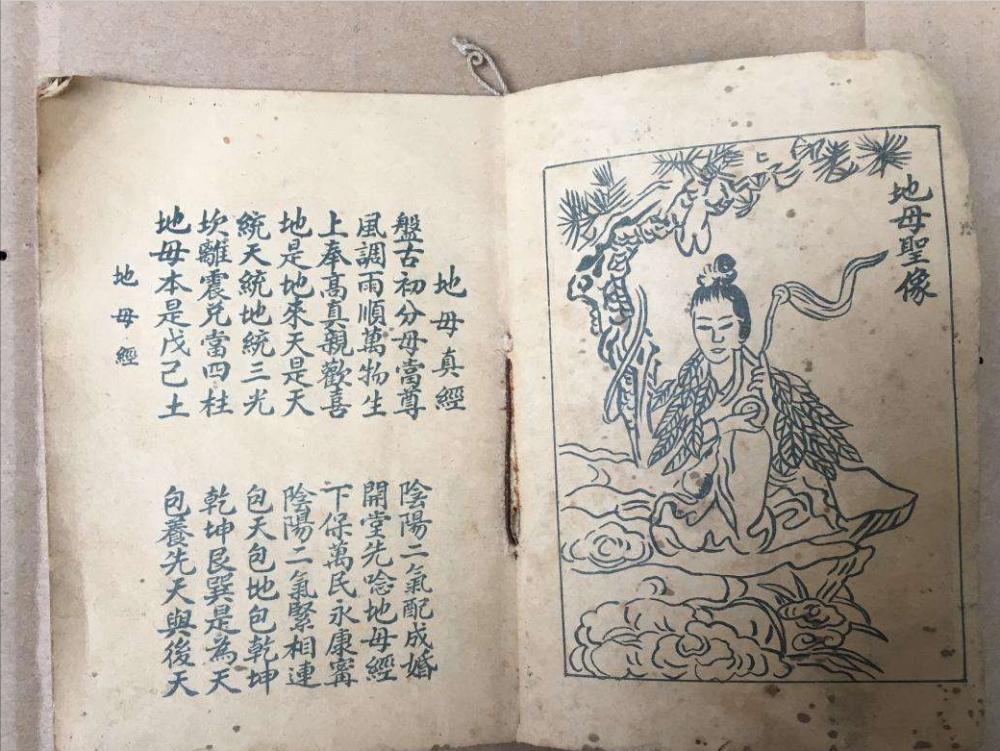 地母聖像
地母真經
盤古初分母當尊 陰陽二氣配成婚
風調雨順萬物生 開堂先唸地母經
上奉高真親歡喜 下保萬民永康寗
地是地來天是天 陰陽二氣緊相連
統天統地統三光 包天包地包乾坤
坎離震兌當四柱 乾坤艮巽是為天
地母本是戊己土 包養先天與後天
地母經